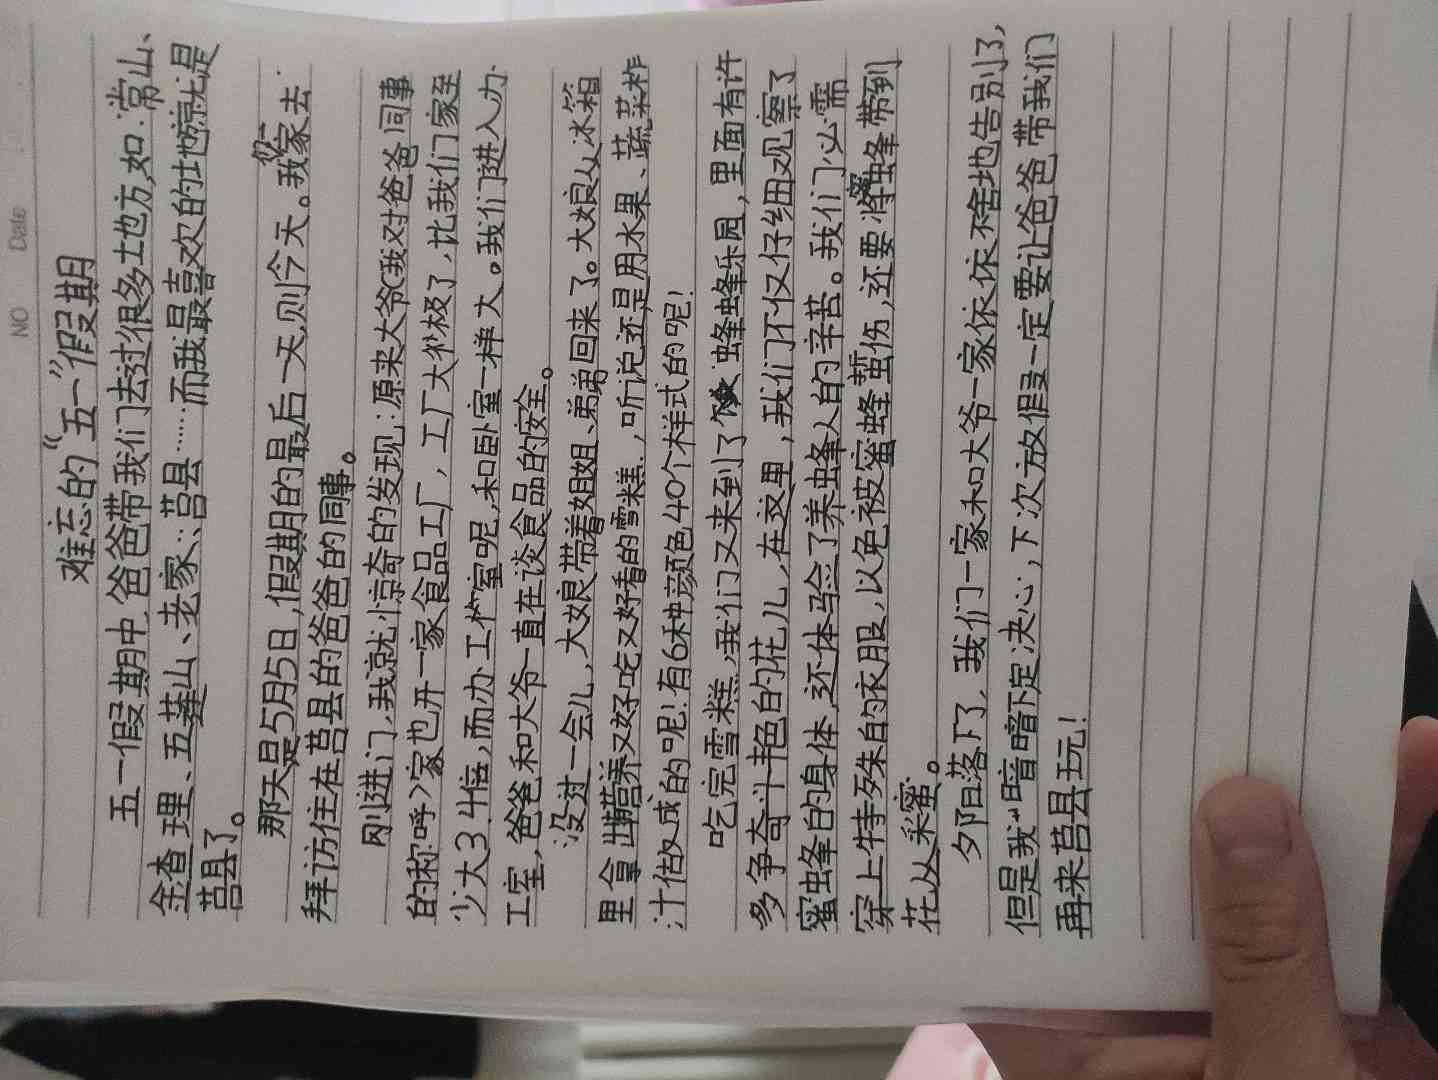 NO Date
难忘的“五一”假期
五一假期中,爸爸带我们去过很多地方,如:常山、
金查理、五莲山、老家、莒县……而我最喜欢的地方就是
莒县了。
那天是5月5日,假期的最后一天,则今天。我们家去
拜访住在莒县的爸爸的同事。
刚进门,我就惊奇的发现:原来大爷(我对爸爸同事
的称呼)家也开一家食品工厂,工厂大极了,比我们家至
少大34倍,而办工室呢,和卧室一样大。我们进入办
工室,爸爸和大爷一直在谈食品的安全。
没过一会儿,大娘带着姐姐、弟弟回来了。大娘从冰箱
里拿出营养又好吃又好看的雪糕,听说还是用水果、蔬菜榨
汁做成的呢!有6种颜色40个样式的呢!
吃完雪糕,我们又来到了蜂蜂乐园,里面有许
多争奇斗艳的花儿,在这里,我们不仅仔细观察了
蜜蜂的身体,还体验了养蜂人的辛苦。我们必需
穿上特殊的衣服,以免被蜜蜂蜇伤,还要将蜜蜂带到
花丛采蜜。
夕阳落下了,我们一家和大爷一家依依不舍地告别了,
但是我暗暗下定决心,下次放假一定要让爸爸带我们
再来莒县玩!